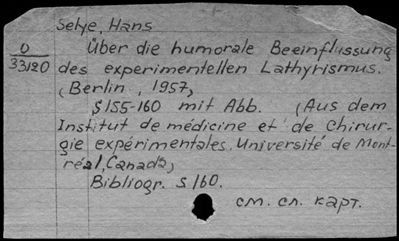 Selye, Hans
O
33120
Über die humorale Beeinflussung
des experimentellen Lathyrismus.
(Berlin, 1957)
S155-160 mit Abb. (Aus dem
Institut de médicine et de Chirur-
gie expérimentales, Université de Mont-
réal, Canada)
Bibliogr. S160.
см. сл. карт.